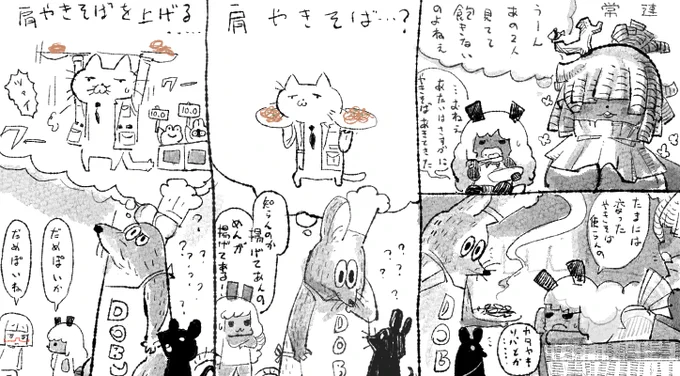 常連
うーん
あの2人
見てて
飽きない
のよねえ
あたいはさすがに
やきそばあきてきた
たまには
変わった
やきそば
カタヤキ
ソバとか
……
DOB
肩やきそば…?
知らんのか
揚げてあんの
めんが
揚げてある!
? ? ? ?
DOB
肩やきそばを上げる
……
ワー
ワー
10.0
10.0
? ? ? ? ?
だめぽいか
だめぽいね
DOBU